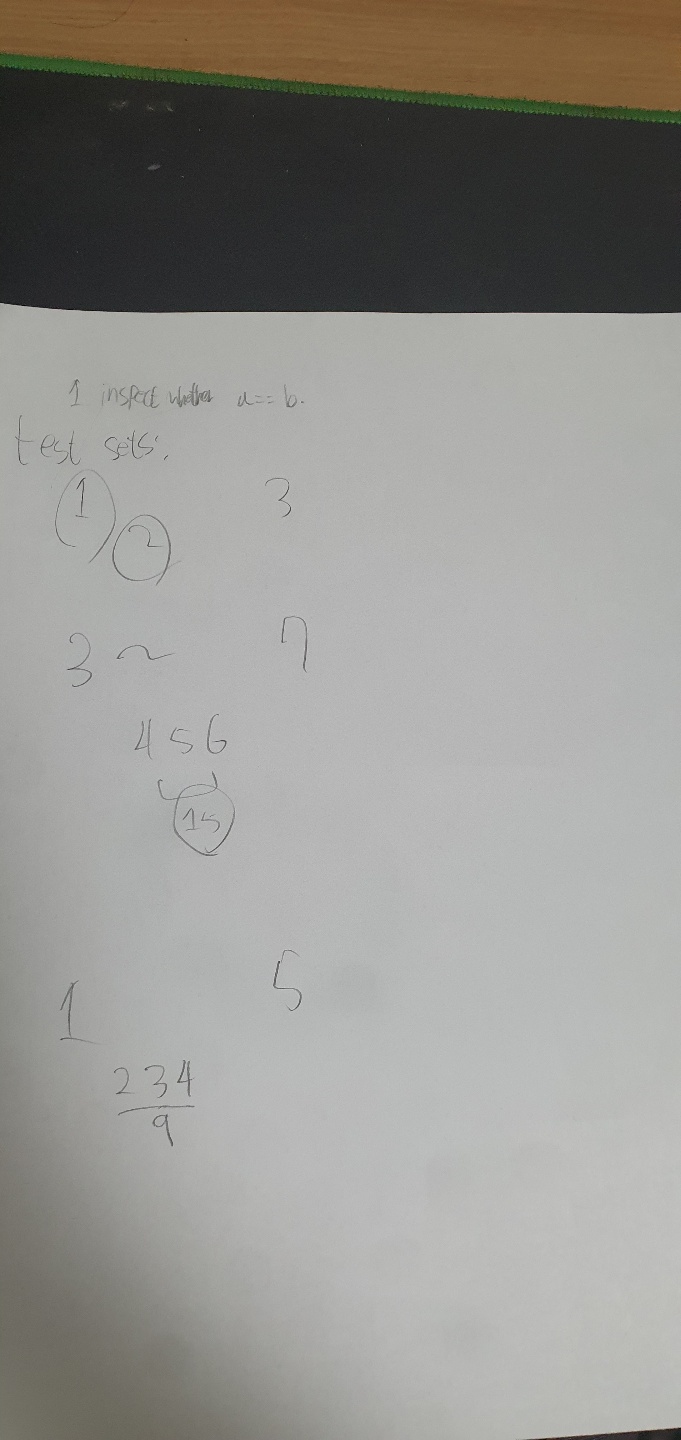 1 inspect whether a == b.
test sets:
1 3
2
3 ~ 7
4 5 6
15
1 5
2 3 4
9